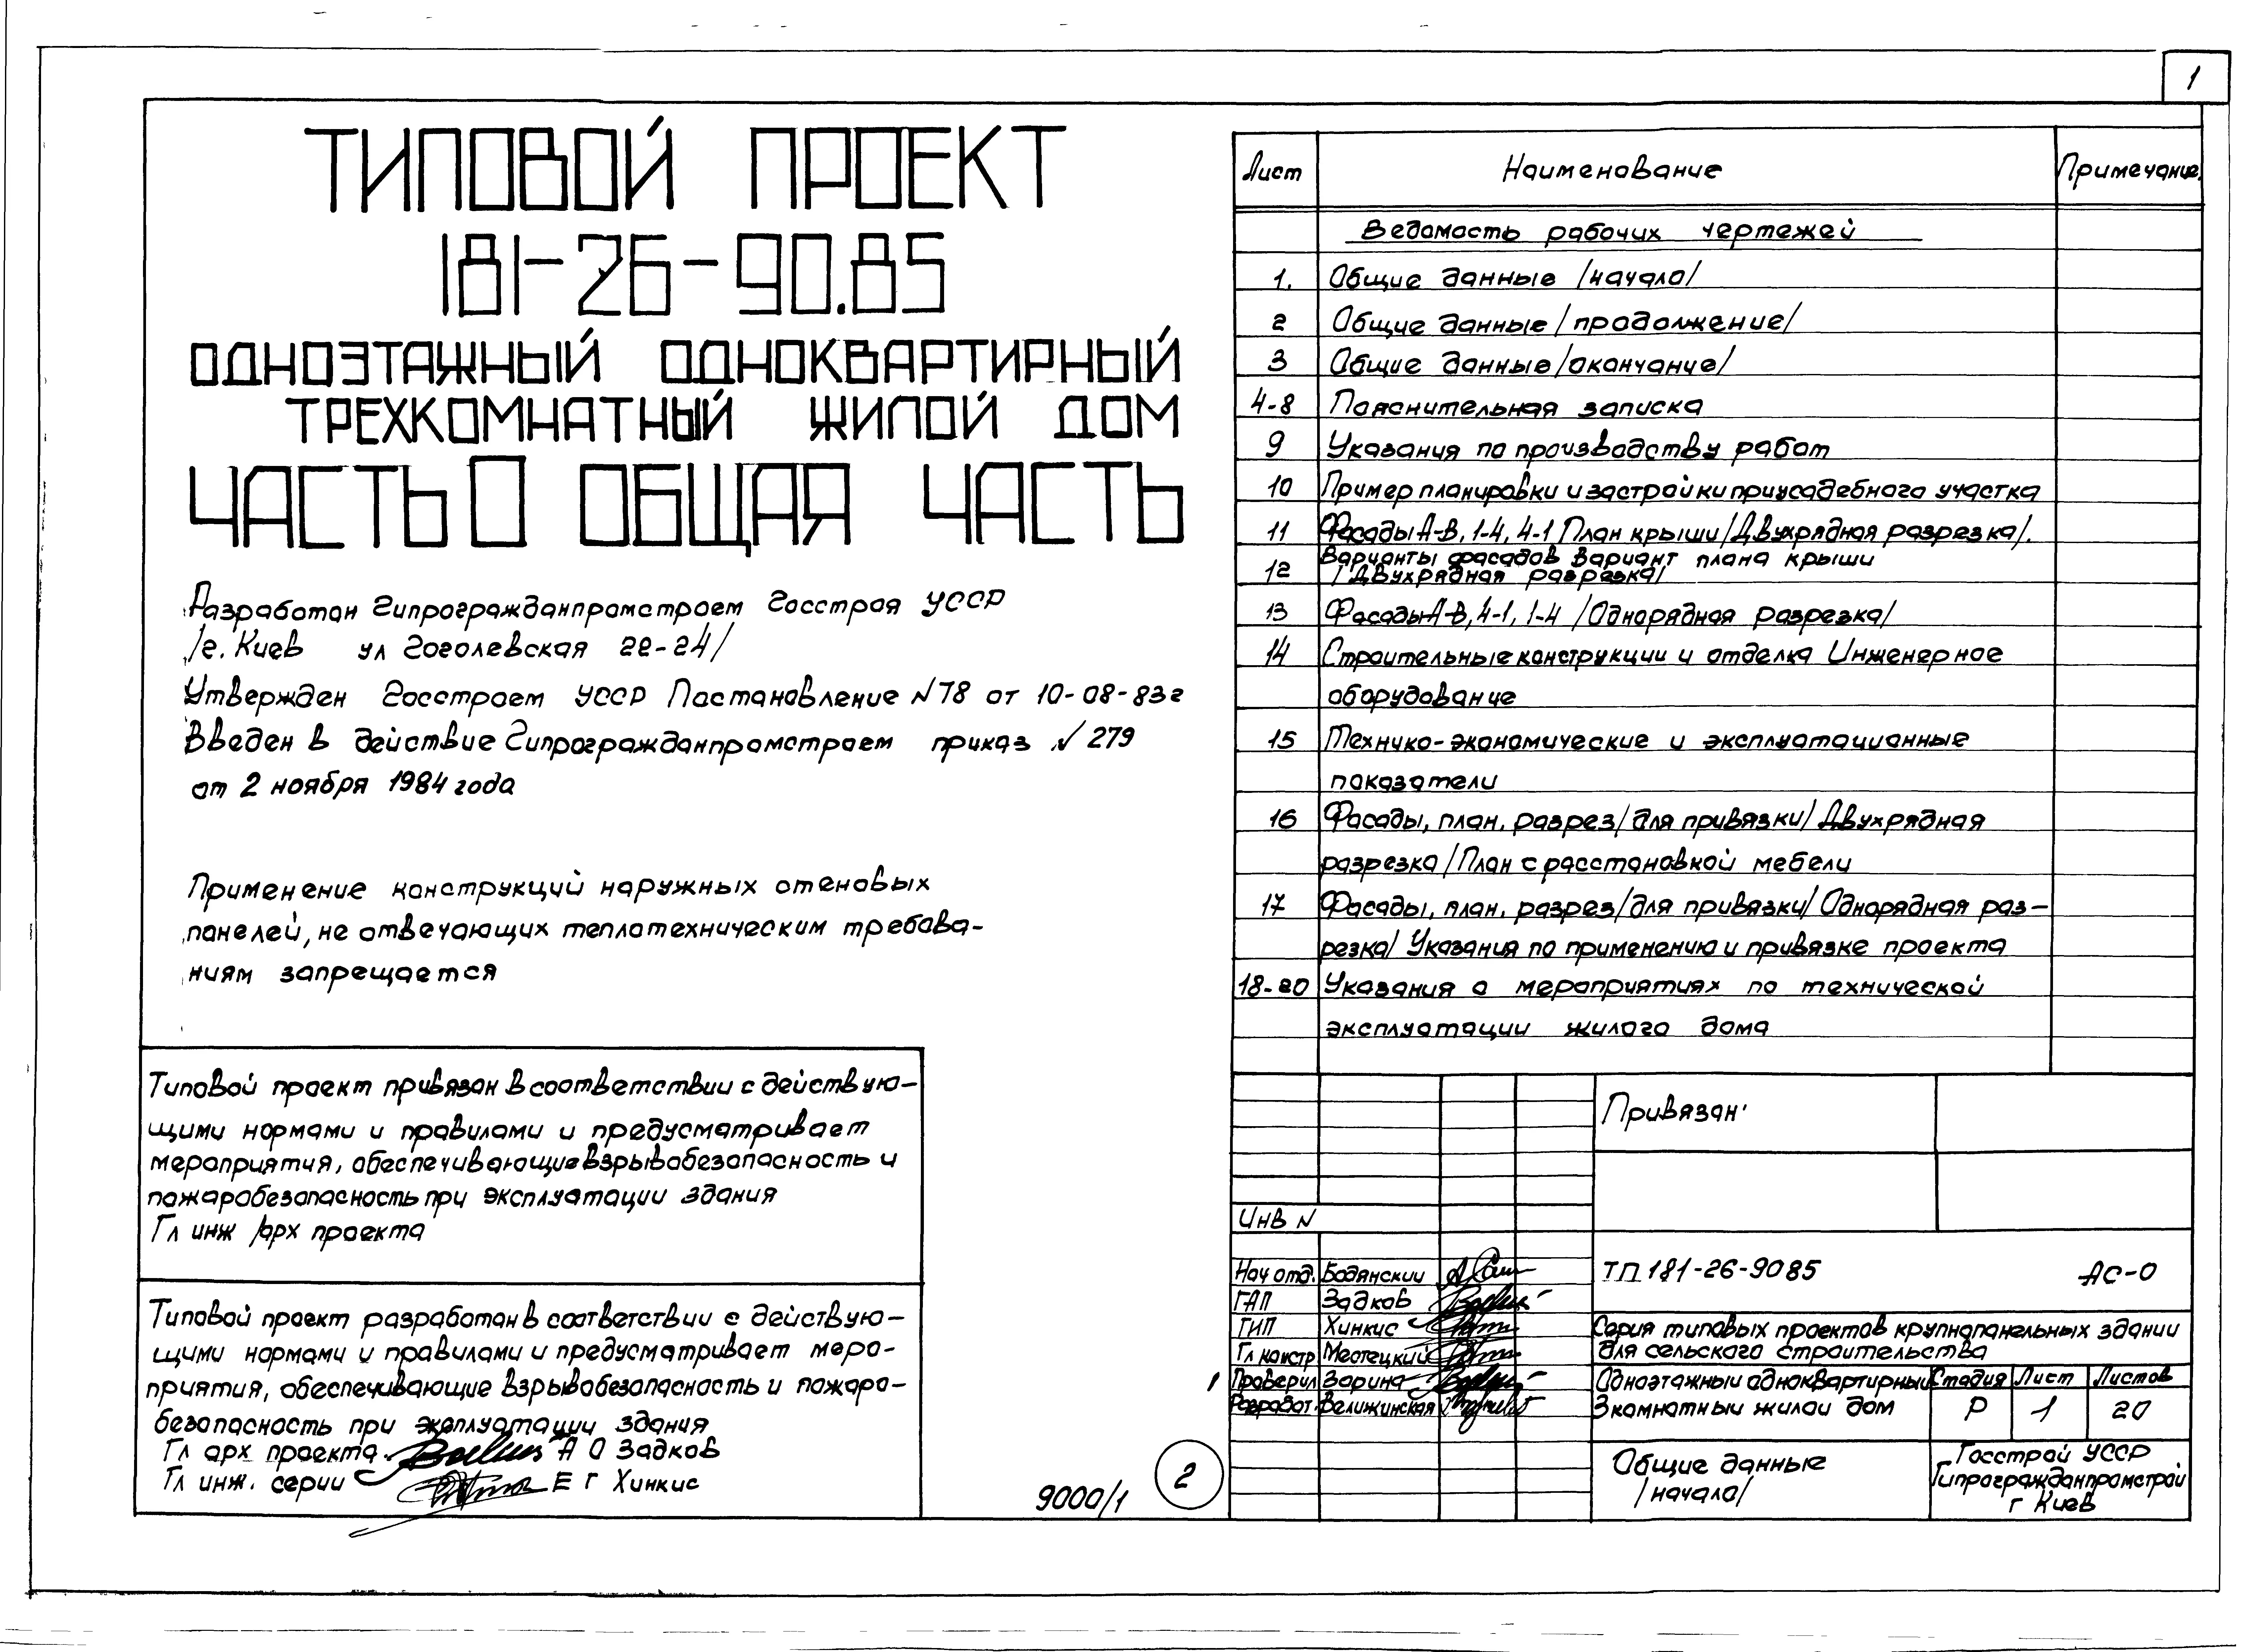 1
ТИПОВОЙ ПРОЕКТ
181-26-90.85
ОДНОЭТАЖНЫЙ ОДНОКВАРТИРНЫЙ
ТРЕХКОМНАТНЫЙ ЖИЛОЙ ДОМ
ЧАСТЬ 0 ОБЩАЯ ЧАСТЬ
Разработан Гипрогражданпромстроем Госстроя УССР
/г. Киев ул Гоголевская 22-24/
Утвержден Госстроем УССР Постановление N78 от 10-08-83г
Введен в действие Гипрогражданпромстроем приказ N 279
от 2 ноября 1984 года
Применение конструкций наружных стеновых
панелей, не отвечающих теплотехническим требова-
ниям запрещается
Типовой проект привязан в соответствии с действую-
щими нормами и правилами и предусматривает
мероприятия, обеспечивающие взрывобезопасность и
пожаробезопасность при эксплуатации здания
Гл инж /арх проекта
Типовой проект разработан в соответствии с действую-
щими нормами и правилами и предусматривает меро-
приятия, обеспечивающие взрывобезопасность и пожаро-
безопасность при эксплуатации здания
Гл арх проекта. А О Задков
Гл инж. серии Е Г Хинкис
9000/1
2
Лист Наименование Примечание.
Ведомость рабочих чертежей
1. Общие данные /начало/
2 Общие данные /продолжение/
3 Общие данные /окончание/
4-8 Пояснительная записка
9 Указания по производству работ
10 Пример планировки и застройки приусадебного участка
11 Фасады А-В, 1-4, 4-1 План крыши /Двухрядная разрезка/.
12 Варианты фасадов Вариант плана крыши
/Двухрядная разрезка/
13 Фасады А-В, 4-1, 1-4 /Однорядная разрезка/
14 Строительные конструкции и отделка Инженерное
оборудование
15 Технико-экономические и эксплуатационные
показатели
16 Фасады, план, разрез /для привязки/ Двухрядная
разрезка /План с расстановкой мебели
17 Фасады, план, разрез /для привязки/ Однорядная раз-
резка/ Указания по применению и привязке проекта
18-20 Указания о мероприятиях по технической
эксплуатации жилого дома
Привязан:
Инв N
Нач отд. Бодянский
ГАП Задков
ГИП Хинкис
Гл констр Местецкий
1 Проверил Зорина
Разработ. Велижинская
ТП 181-26-90 85 АС-0
Серия типовых проектов крупнопанельных здании
для сельского строительства
Одноэтажный одноквартирный
3комнатный жилой дом
Стадия Лист Листов
Р 1 20
Общие данные
/начало/
Госстрой УССР
Гипрогражданпромстрой
г Киев